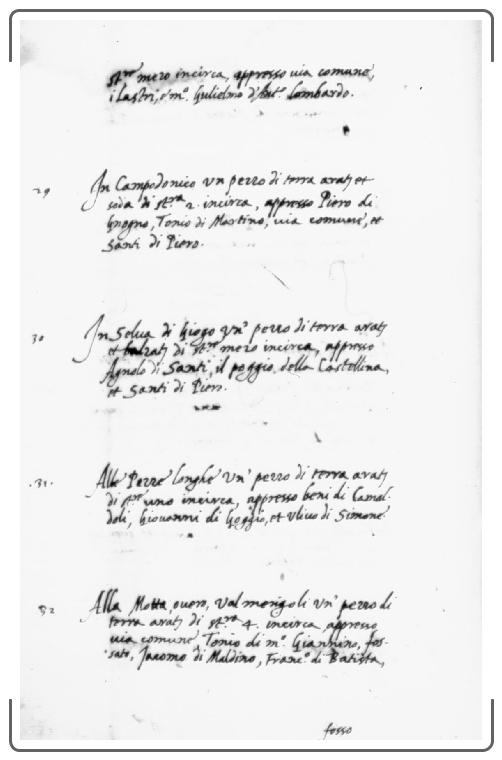 st.re mezo incirca, appresso uia comune,
i Lastri, et m.o Gulielmo d'Ant.o Lombardo.
29 In Campodonico un pezzo di terra arat; et
soda di st.ra 2. incirca, appresso Piero di
Gnogno, Tonio di Martino, uia comune, et
Santi di Piero.
30 In Selua di Giogo un' pezzo di terra arat;
et balzat; di st.re mezo incirca, appresso
Agnolo di Santi, il poggio della Castellina,
et Santi di Piero.
31. Alle Pezze longhe un' pezzo di terra arat;
di st.re uno incirca, appresso beni di Camal-
doli, Giouanni di Goggio, et Uliuo di Simone
32 Alla Motta, ouero, Val merigoli un' pezzo di
terra arat; di st.ra 4. incirca, appresso
uia comune Tonio di m.o Giannino, fos-
sato, Jacomo di Maldino, Franc.o di Batista,
fosso